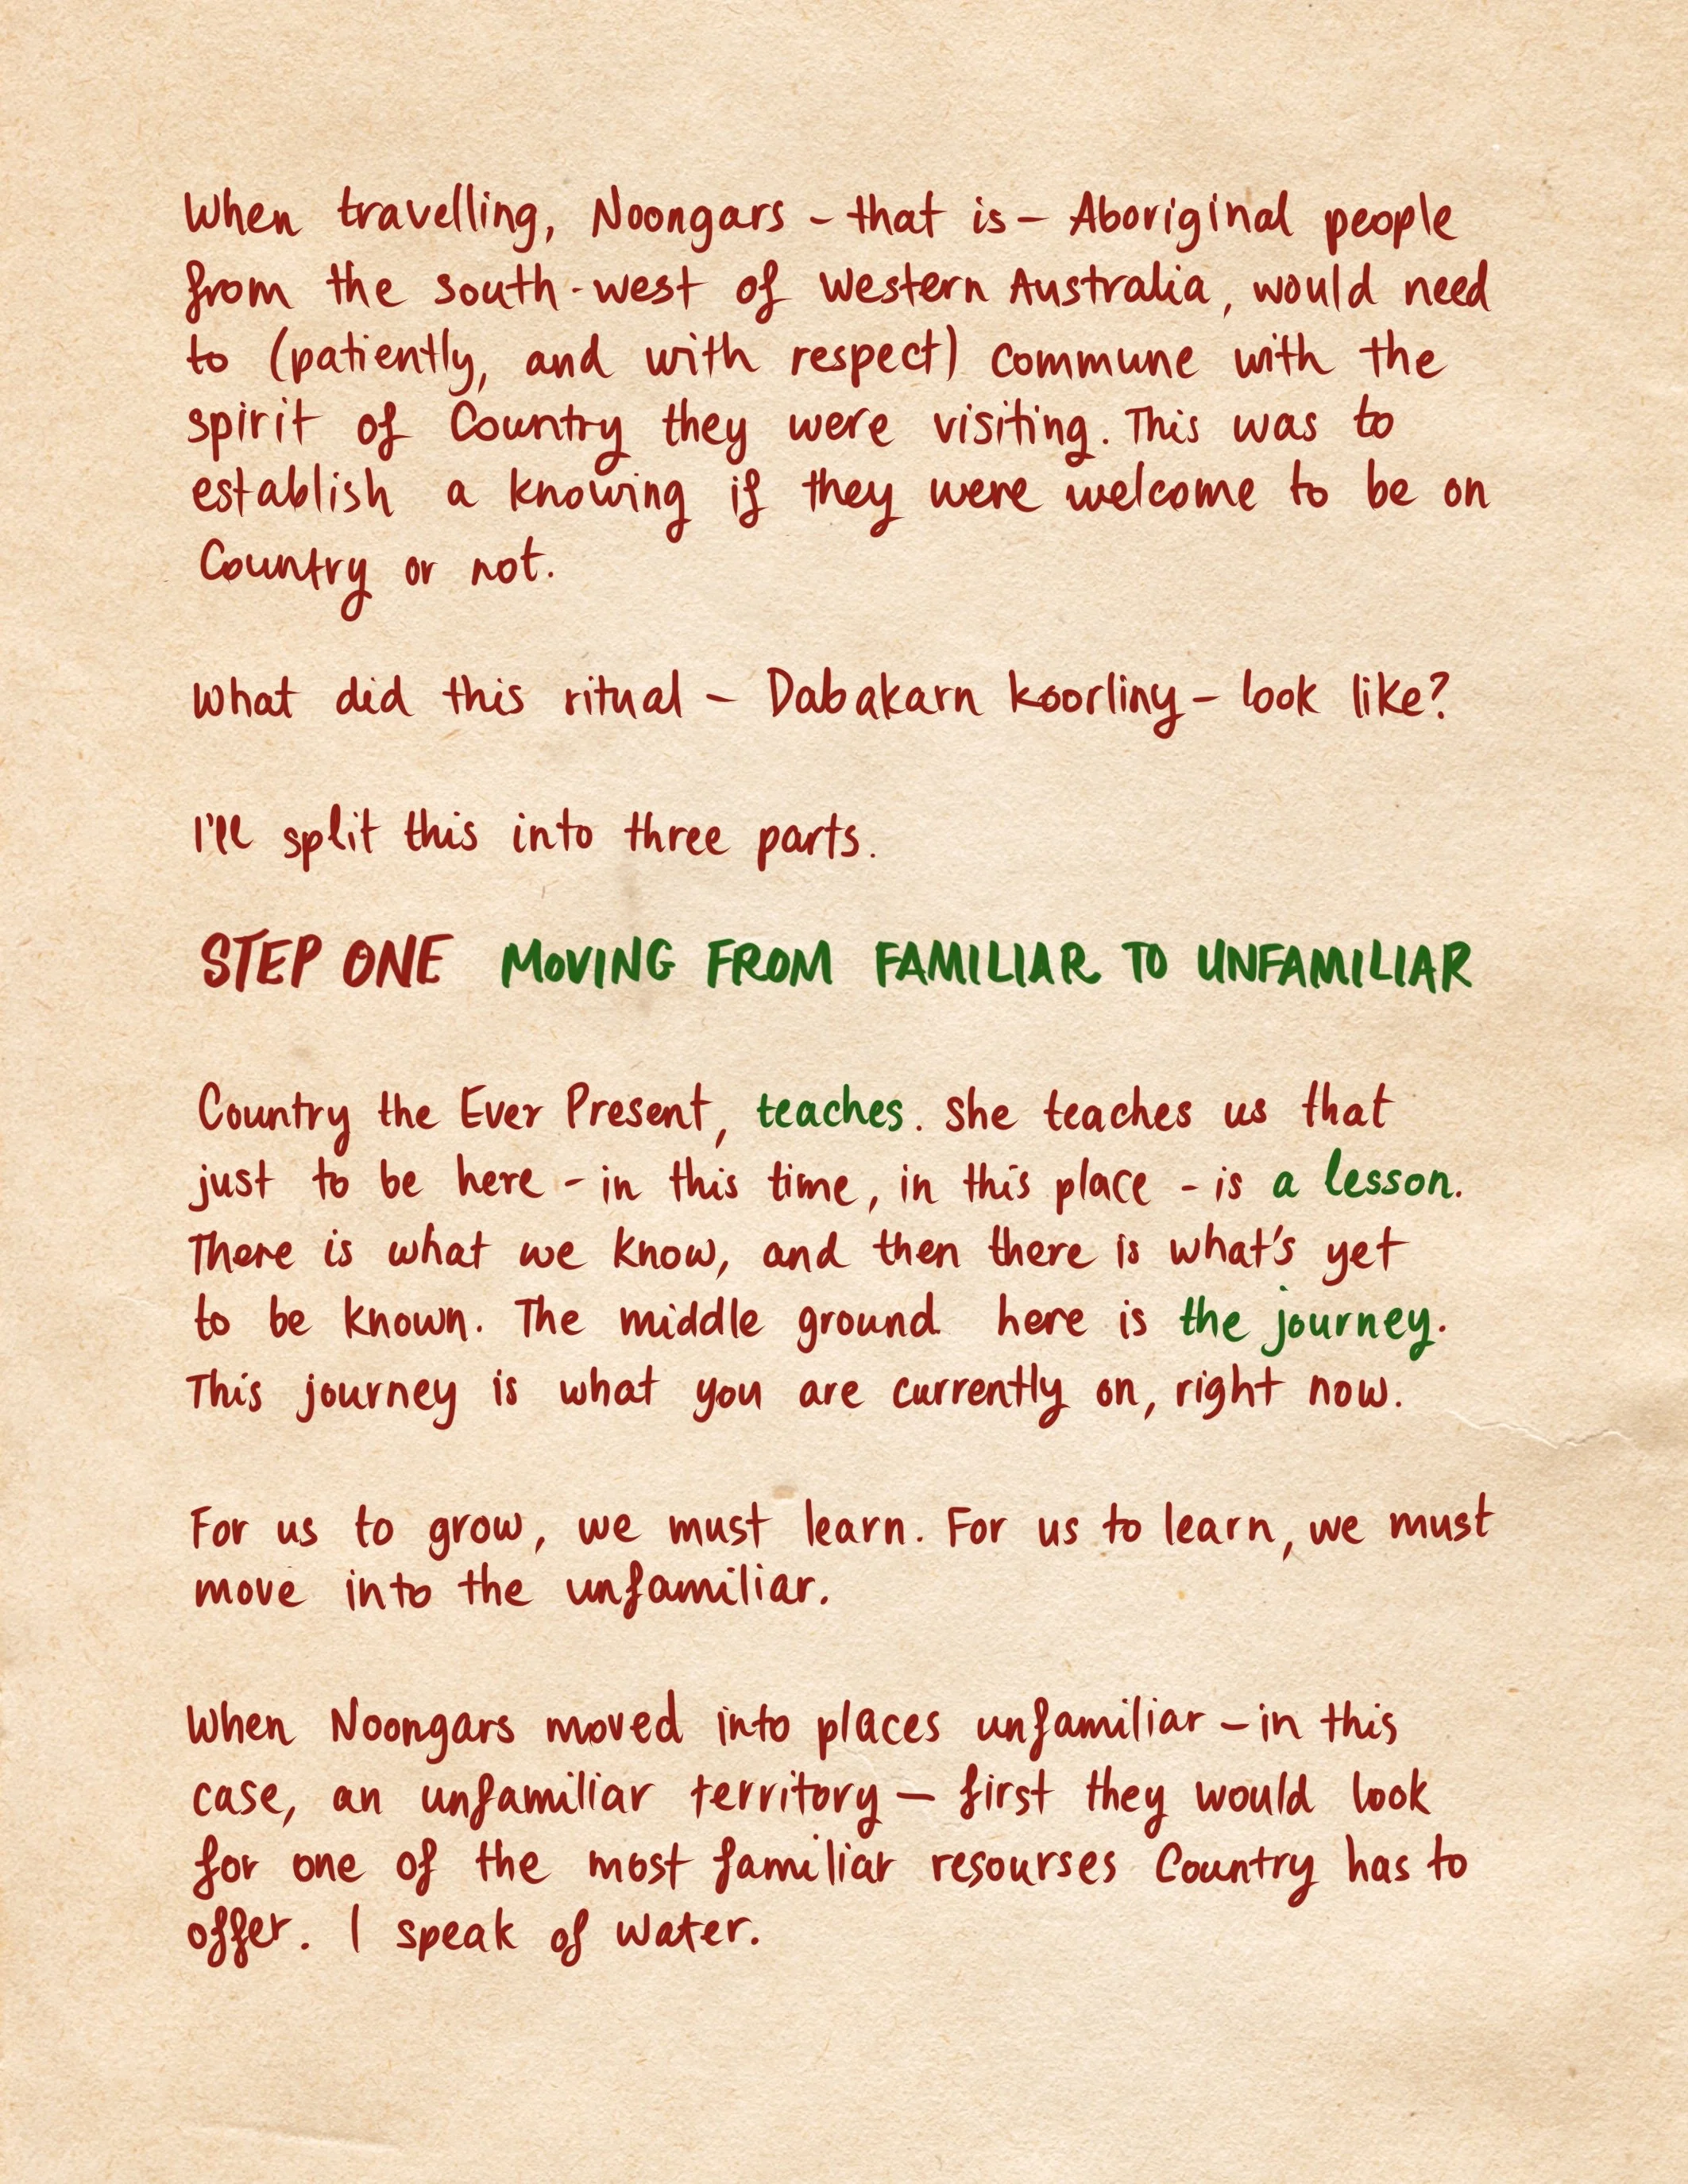 When travelling, Noongars - that is - Aboriginal people
from the south-west of Western Australia, would need
to (patiently, and with respect) commune with the
spirit of Country they were visiting. This was to
establish a knowing if they were welcome to be on
Country or not.
What did this ritual - Dabakarn koorliny - look like?
I'll split this into three parts.
STEP ONE MOVING FROM FAMILIAR TO UNFAMILIAR
Country the Ever Present, teaches. She teaches us that
just to be here - in this time, in this place - is a lesson.
There is what we know, and then there is what's yet
to be known. The middle ground here is the journey.
This journey is what you are currently on, right now.
For us to grow, we must learn. For us to learn, we must
move into the unfamiliar.
When Noongars moved into places unfamiliar - in this
case, an unfamiliar territory - first they would look
for one of the most familiar resourses Country has to
offer. I speak of water.